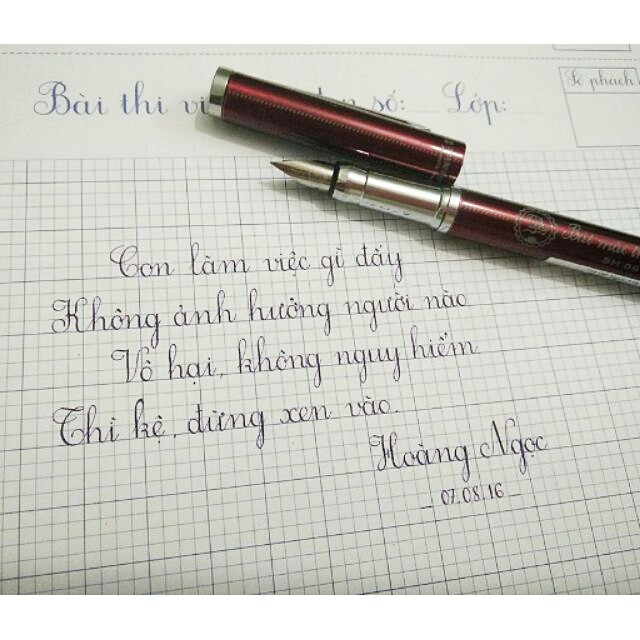 Bài thi vi số: Lớp:
Số phách
Con làm việc gì đấy
Không ảnh hưởng người nào
Vô hại, không nguy hiểm
Thì kệ, đừng xen vào.
Hoàng Ngọc
- 07.08.16 -
Bút mài
SH